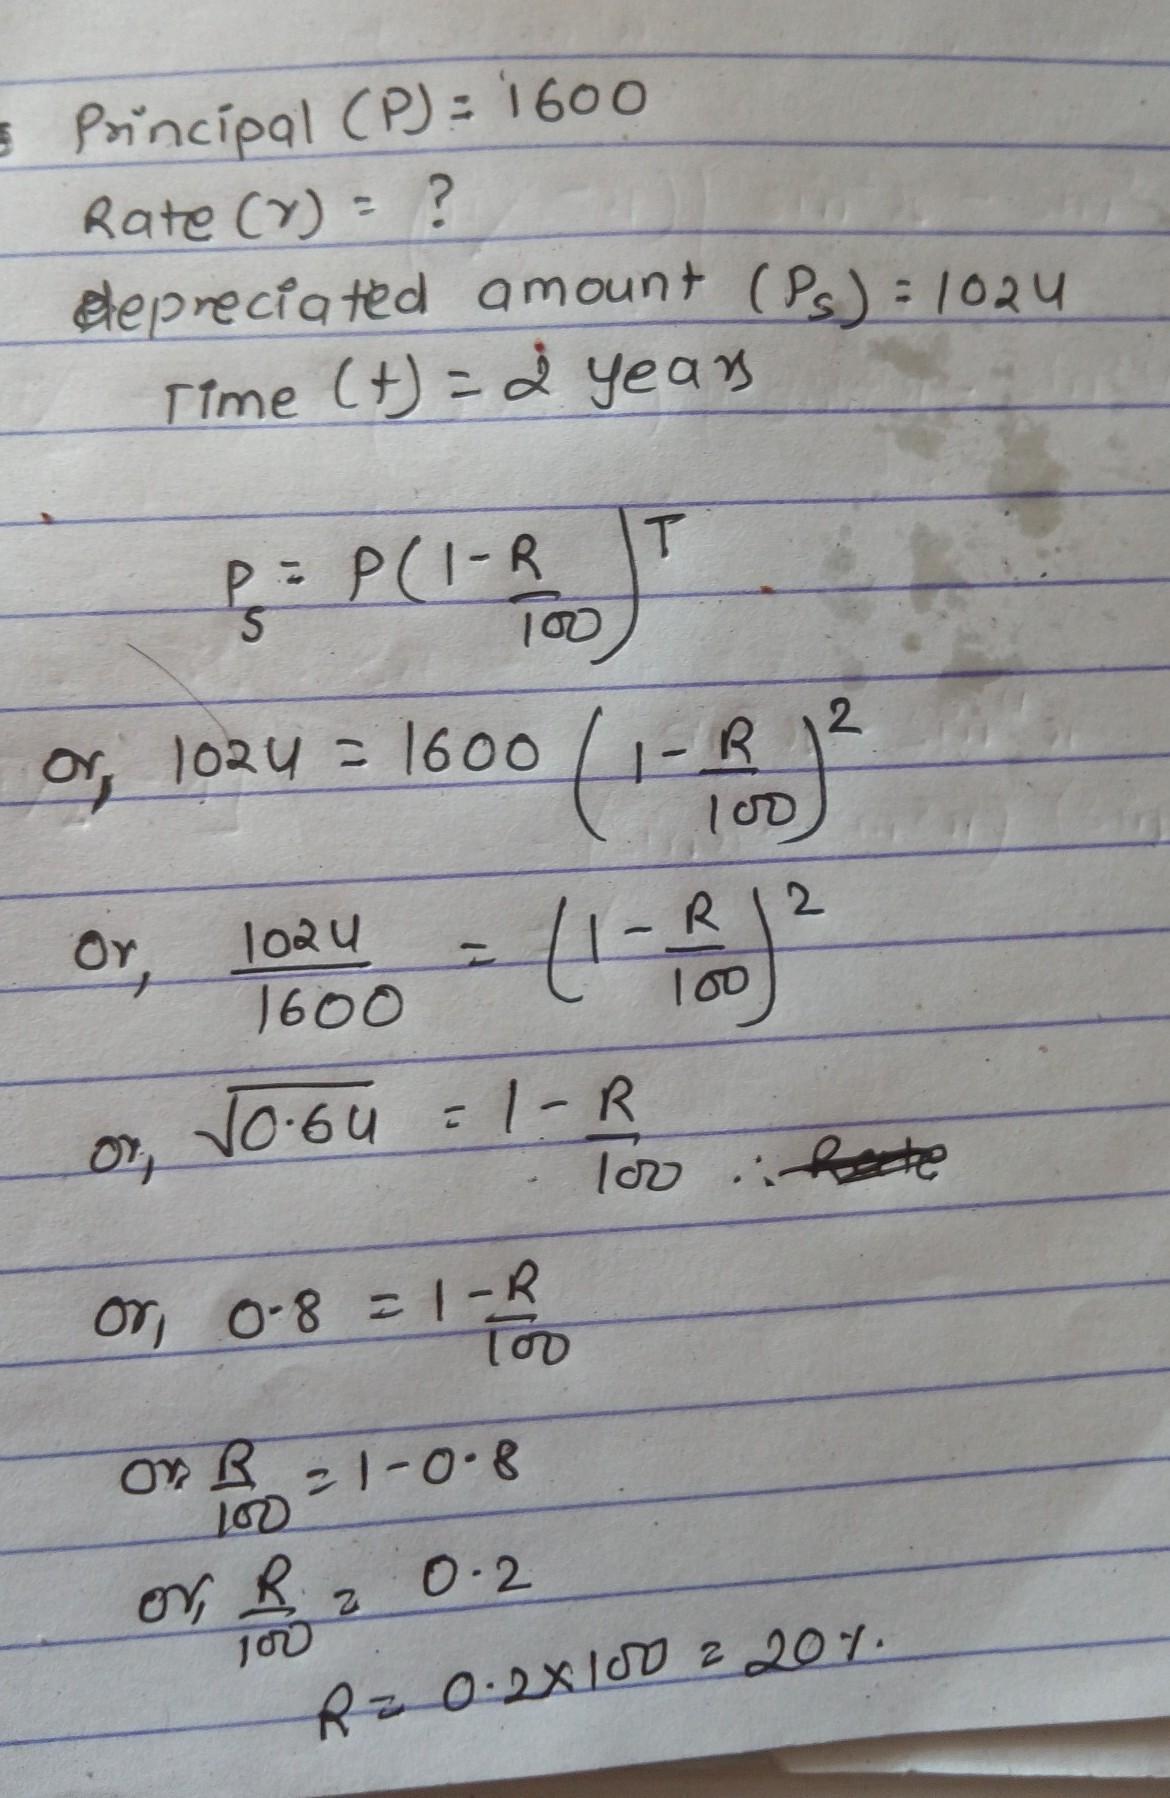 Principal (P) = 1600
Rate (r) = ?
depreciated amount (Ps) = 1024
Time (t) = 2 years
Ps = P(1 - R/100)^T
or, 1024 = 1600 (1 - R/100)^2
Or, 1024/1600 = (1 - R/100)^2
or, √0.64 = 1 - R/100 ∴ Rate
or, 0.8 = 1 - R/100
or, R/100 = 1 - 0.8
or, R/100 = 0.2
R = 0.2 × 100 = 20%.